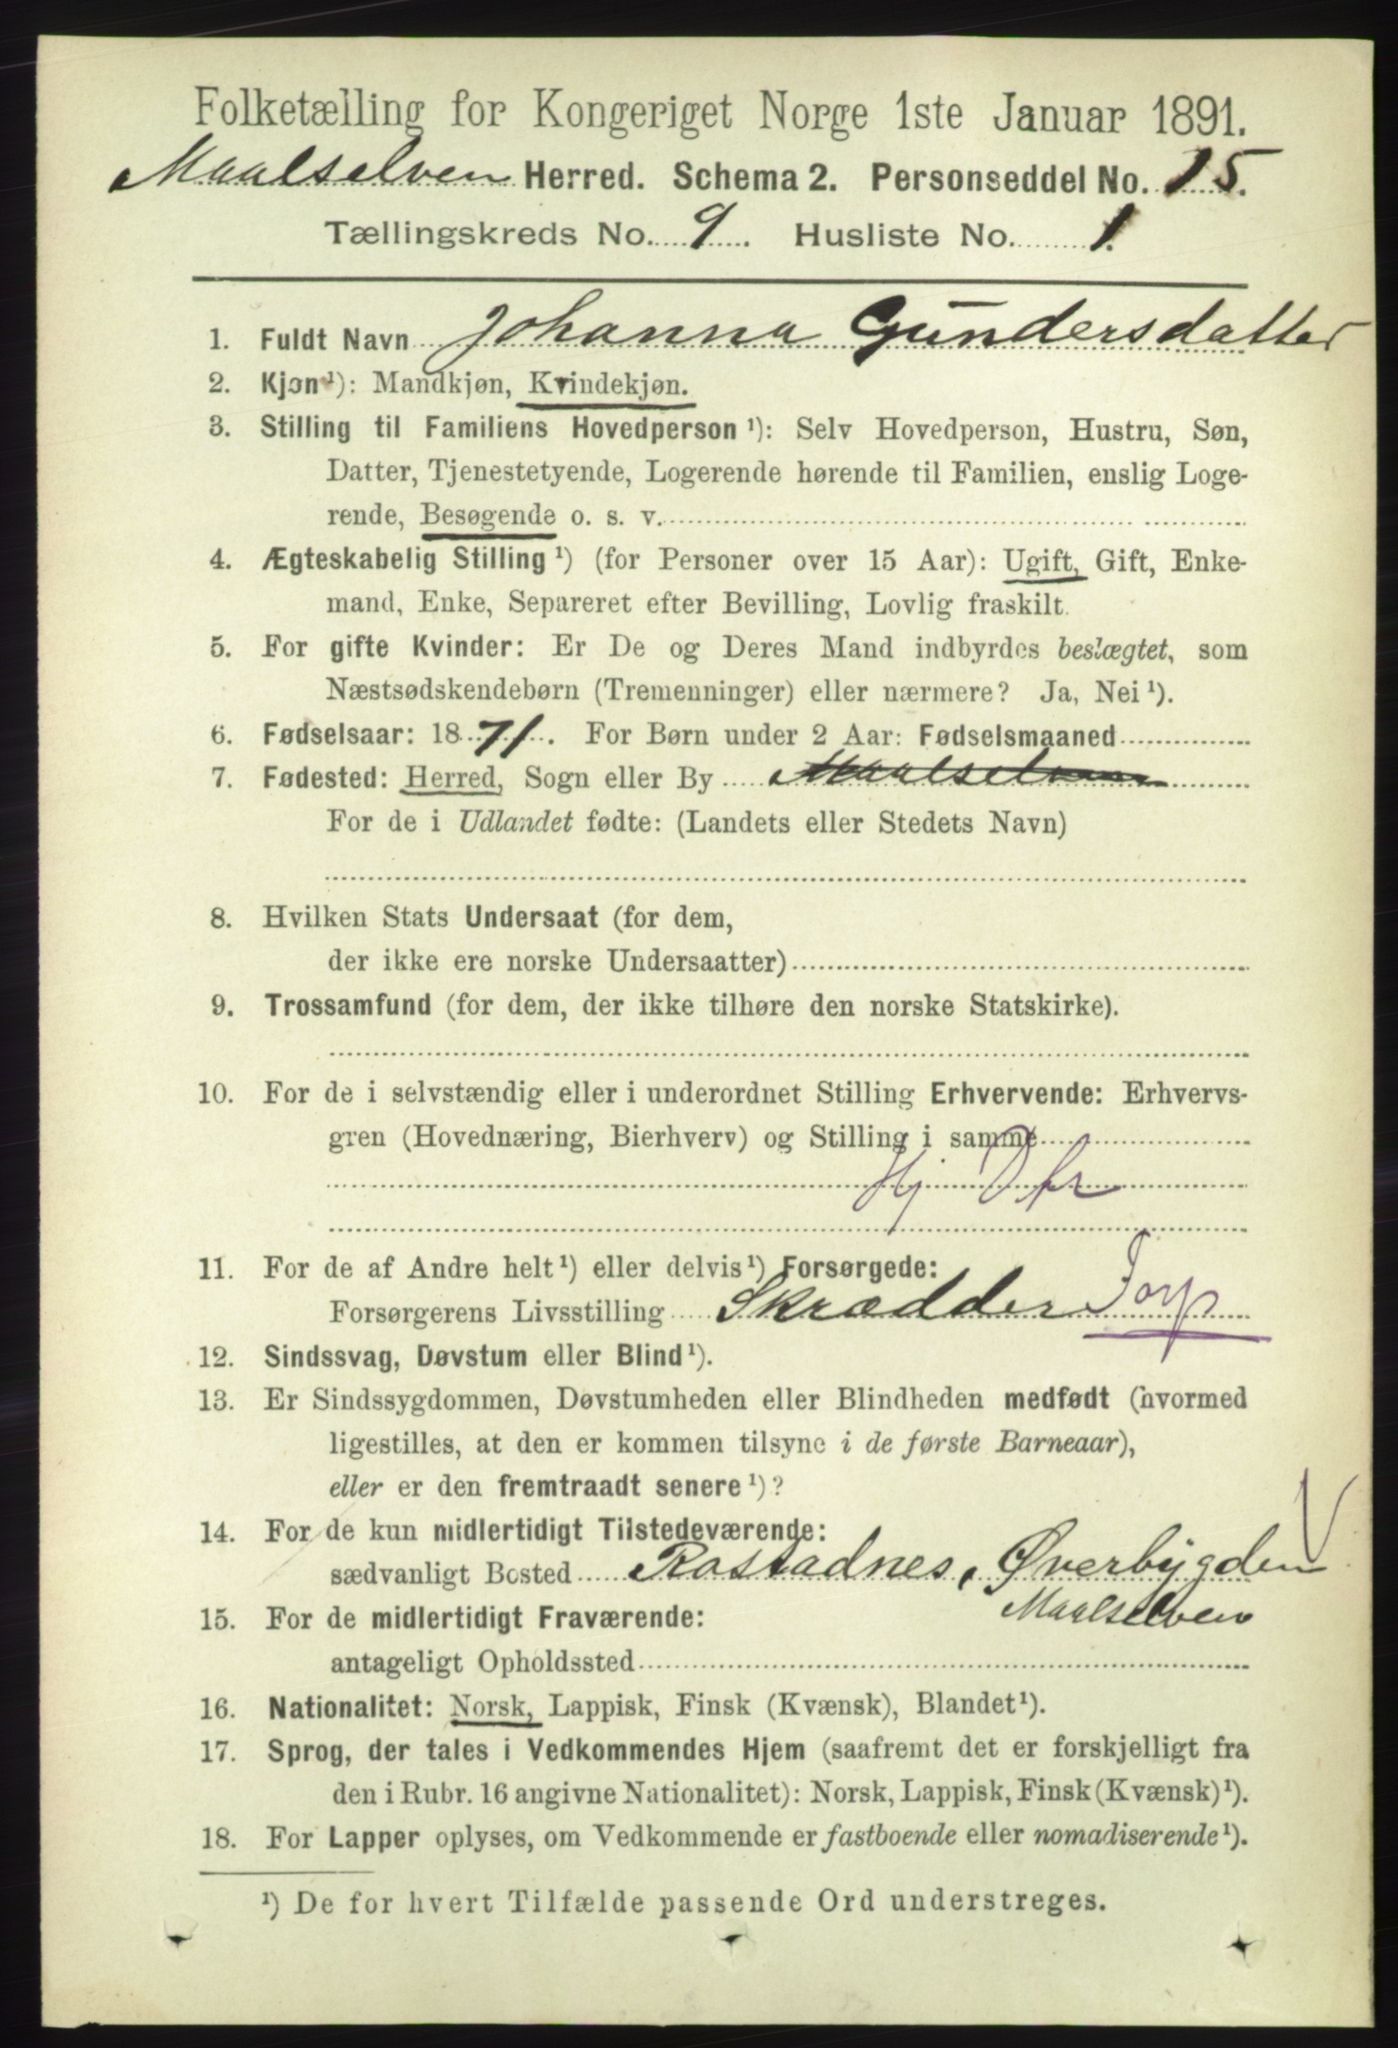 Folketælling for Kongeriget Norge 1ste Januar 1891.
Maalselven Herred. Schema 2. Personseddel No. 15.
Tællingskreds No. 9. Husliste No. 1.
1. Fuldt Navn Johanna Gundersdatter
2. Kjøn¹): Mandkjøn, Kvindekjøn.
3. Stilling til Familiens Hovedperson¹): Selv Hovedperson, Hustru, Søn,
Datter, Tjenestetyende, Logerende hørende til Familien, enslig Loge-
rende, Besøgende o. s. v.
4. Ægteskabelig Stilling¹) (for Personer over 15 Aar): Ugift, Gift, Enke-
mand, Enke, Separeret efter Bevilling, Lovlig fraskilt.
5. For gifte Kvinder: Er De og Deres Mand indbyrdes beslægtet, som
Næstsødskendebørn (Tremenninger) eller nærmere? Ja, Nei¹).
6. Fødselsaar: 1871. For Børn under 2 Aar: Fødselsmaaned
7. Fødested: Herred, Sogn eller By Maalselven
For de i Udlandet fødte: (Landets eller Stedets Navn)
8. Hvilken Stats Undersaat (for dem,
der ikke ere norske Undersaatter)
9. Trossamfund (for dem, der ikke tilhøre den norske Statskirke).
10. For de i selvstændig eller i underordnet Stilling Erhvervende: Erhvervs-
gren (Hovednæring, Bierhverv) og Stilling i samme
Hj
11. For de af Andre helt¹) eller delvis¹) Forsørgede:
Forsørgerens Livsstilling Skrædder Forp
12. Sindssvag, Døvstum eller Blind¹).
13. Er Sindssygdommen, Døvstumheden eller Blindheden medfødt (hvormed
ligestilles, at den er kommen tilsyne i de første Barneaar),
eller er den fremtraadt senere¹)?
14. For de kun midlertidigt Tilstedeværende:
sædvanligt Bosted Rostadnes, Øverbygden
Maalselven
15. For de midlertidigt Fraværende:
antageligt Opholdssted
16. Nationalitet: Norsk, Lappisk, Finsk (Kvænsk), Blandet¹).
17. Sprog, der tales i Vedkommendes Hjem (saafremt det er forskjelligt fra
den i Rubr. 16 angivne Nationalitet): Norsk, Lappisk, Finsk (Kvænsk)¹).
18. For Lapper oplyses, om Vedkommende er fastboende eller nomadiserende¹).
¹) De for hvert Tilfælde passende Ord understreges.